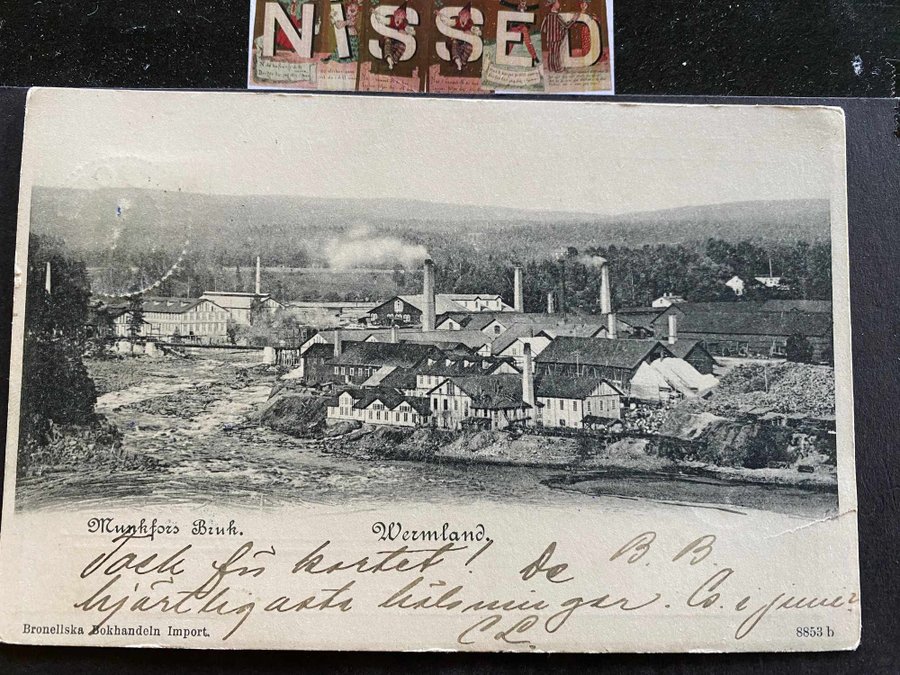 NISSED
Munkfors Bruk. Wermland.
Tack för kortet! De B. B.
hjärtligaste hälsningar. i juni
C L.
Bronellska Bokhandeln Import. 8853 b